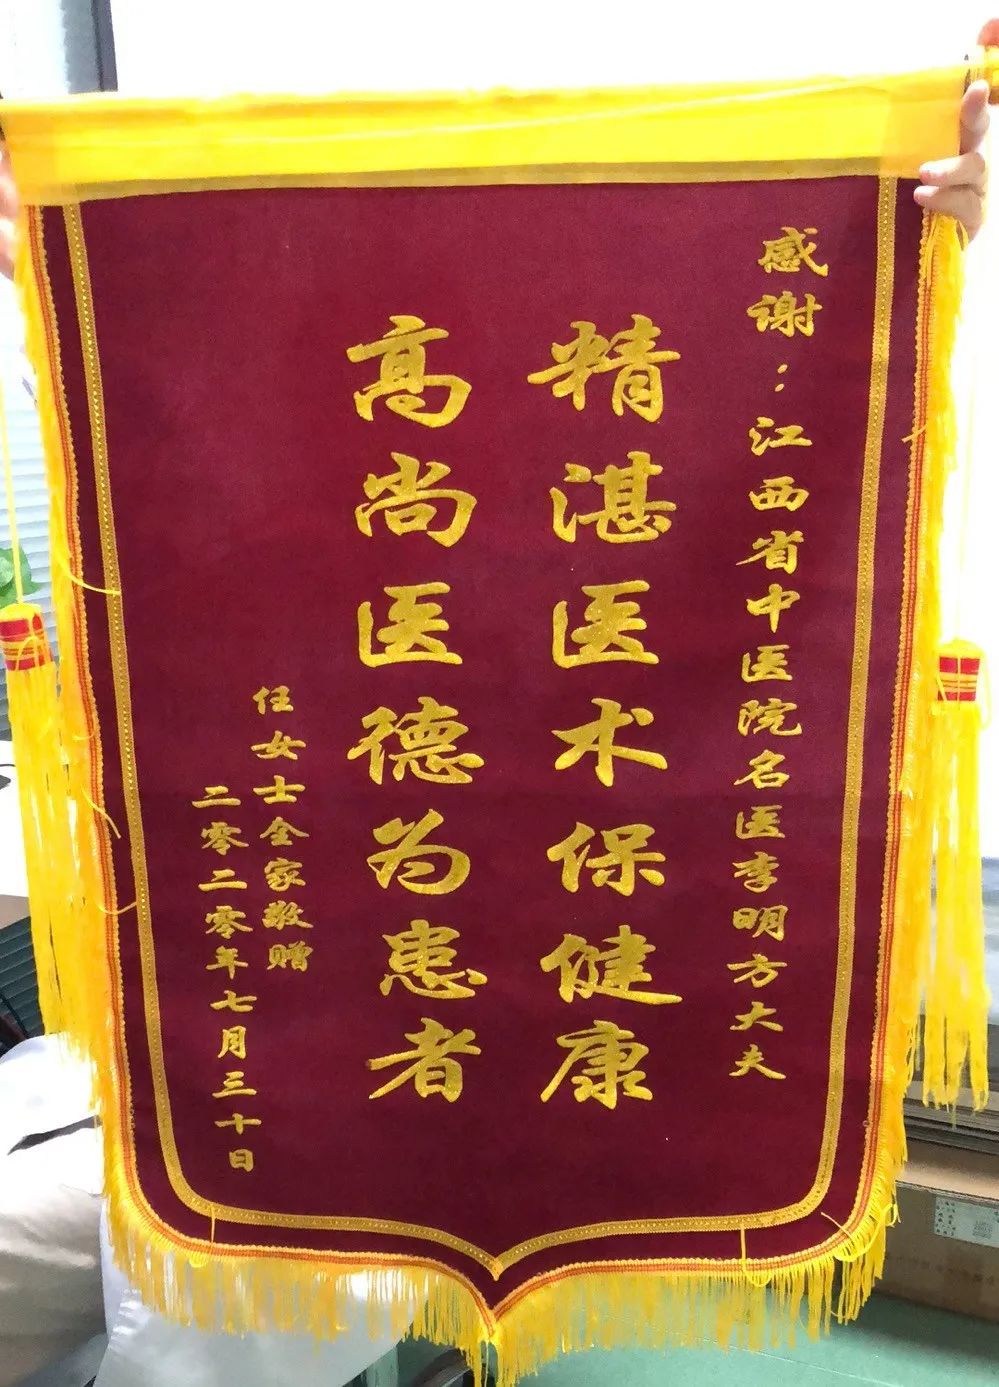 感谢：江西省中医院名医李明方大夫
精湛医术保健康
高尚医德为患者
任女士全家敬赠
二零二零年七月三十日